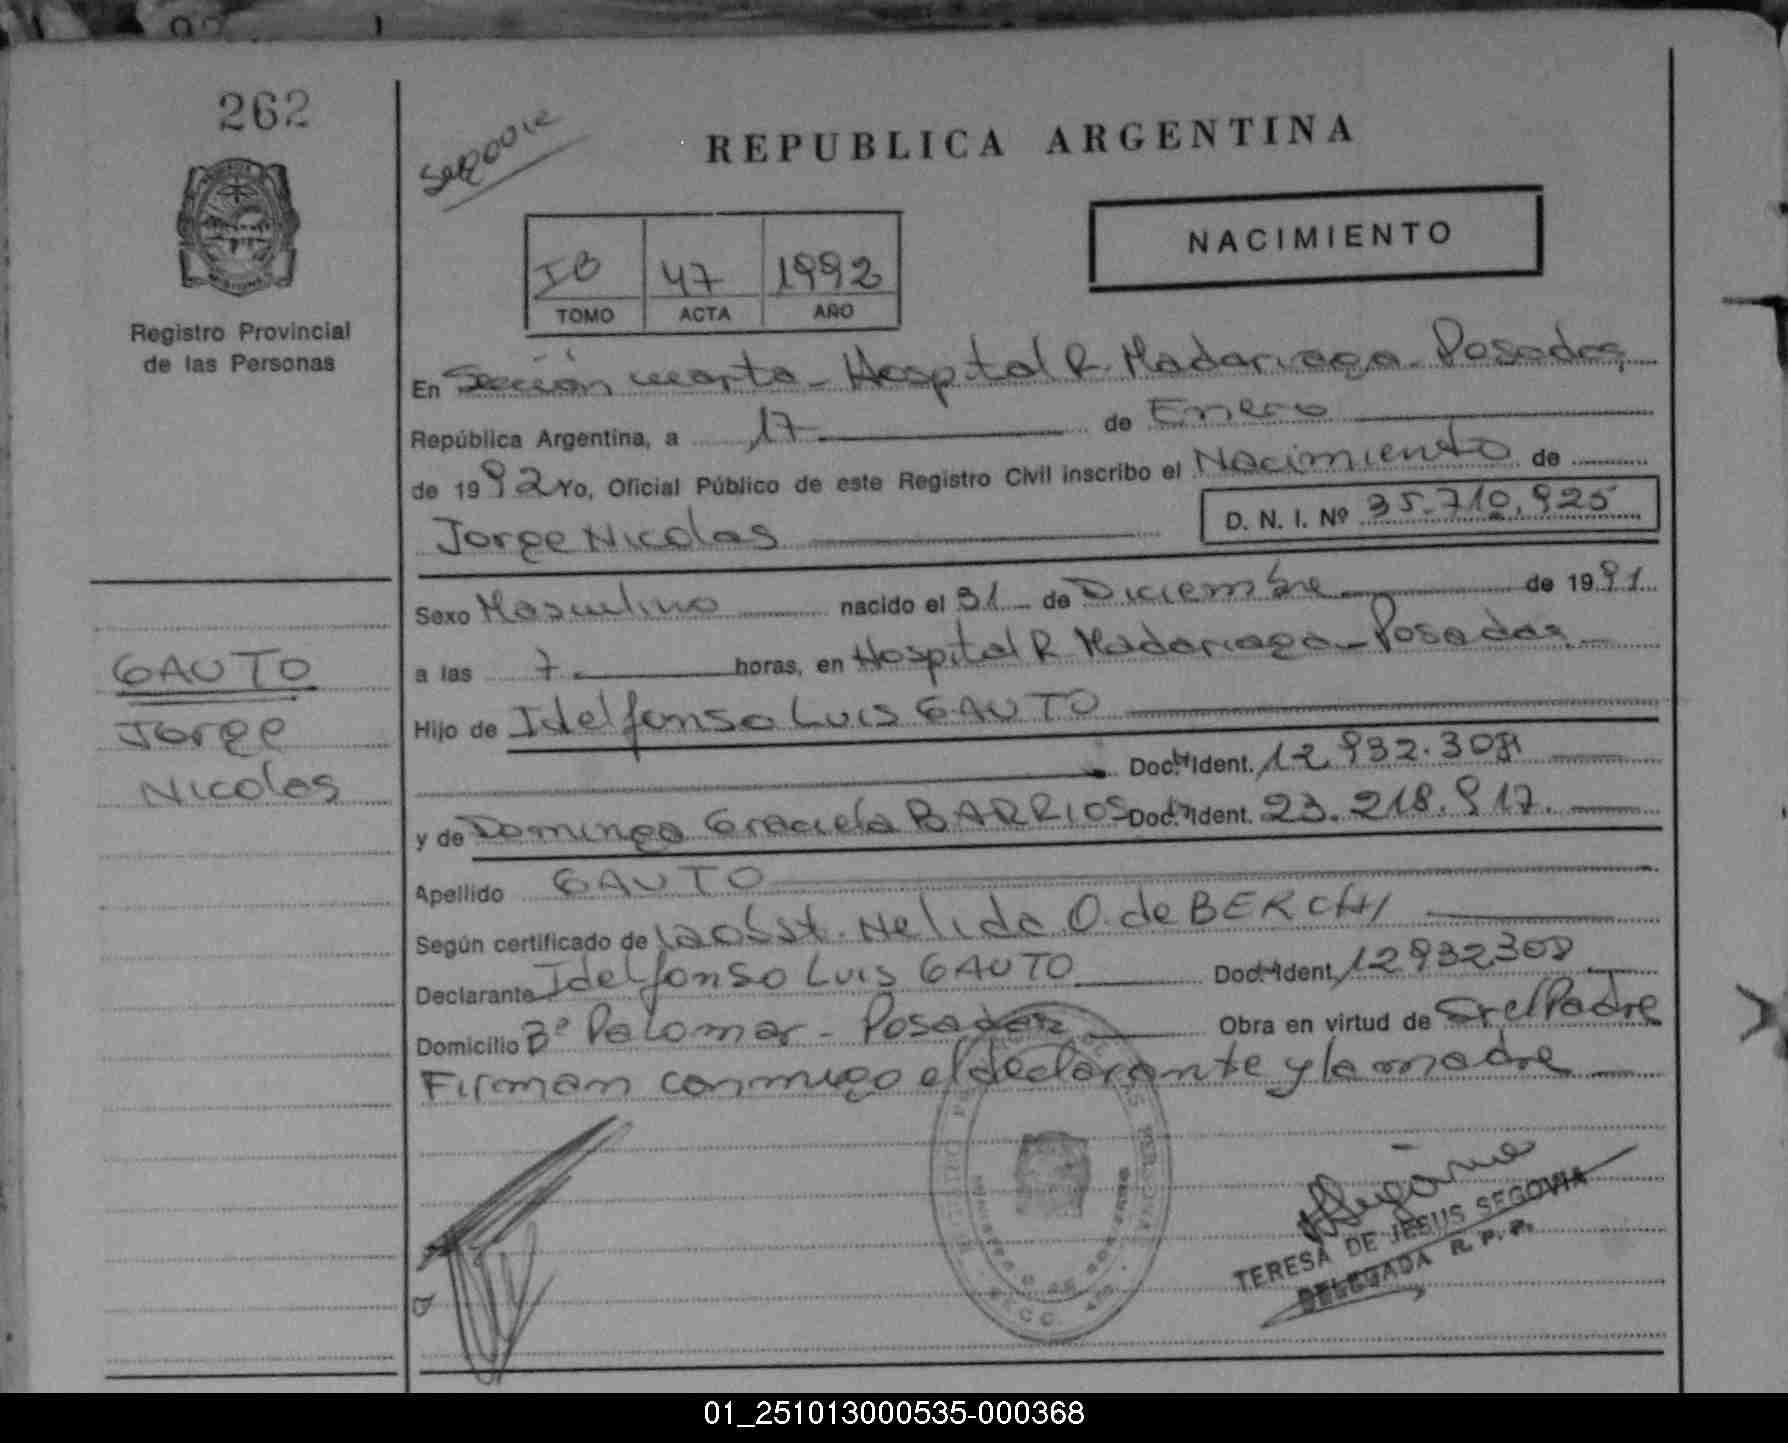 262
REPUBLICA ARGENTINA
NACIMIENTO
IB 47 1992
TOMO ACTA AÑO
Registro Provincial
de las Personas
En Sección cuarta - Hospital R. Madariaga - Posadas
República Argentina, a 17 de Enero
de 1992 Yo, Oficial Público de este Registro Civil inscribo el Nacimiento de
Jorge Nicolas D. N. I. Nº 35.710.925
Sexo Masculino nacido el 31 de Diciembre de 1991
a las 7 horas, en Hospital R Madariaga - Posadas
GAUTO
Jorge
Nicolas
Hijo de Idelfonso Luis GAUTO
Doc. Ident. 12.932.308
y de Dominga Graciela BARRIOS Doc. Ident. 23.218.917
Apellido GAUTO
Según certificado de la Obst. Nelida O. de BERCHI
Declarante Idelfonso Luis GAUTO Doc. Ident. 12932308
Domicilio Bº Palomar - Posadas Obra en virtud de Ser el Padre
Firman conmigo el declarante y la madre
TERESA DE JESUS SEGOVIA
DELEGADA R. P. P.
01_251013000535-000368